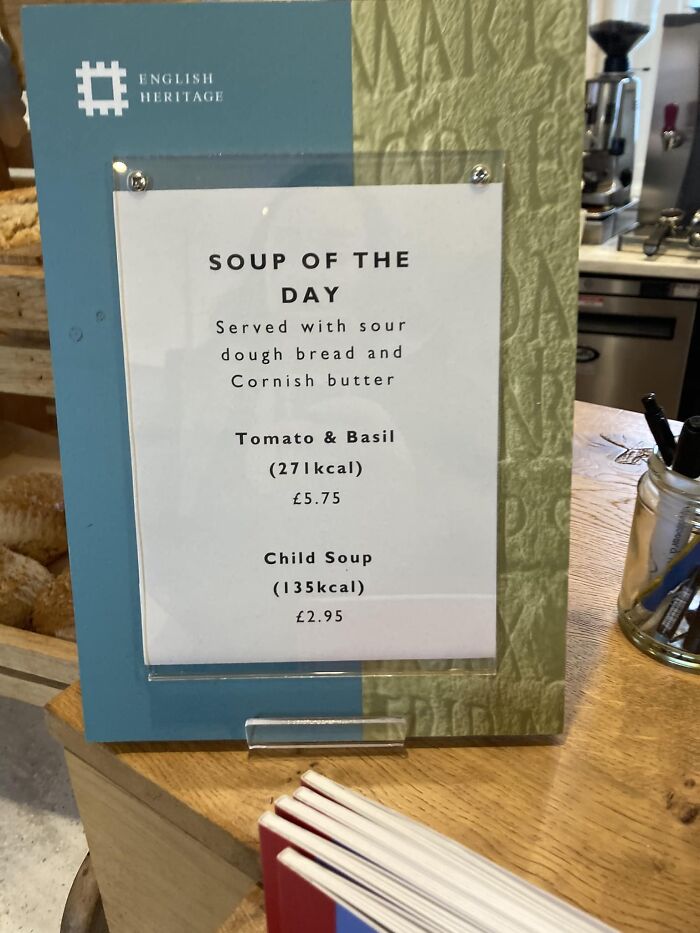 ENGLISH
HERITAGE
SOUP OF THE
DAY
Served with sour
dough bread and
Cornish butter
Tomato & Basil
(271kcal)
£5.75
Child Soup
(135kcal)
£2.95